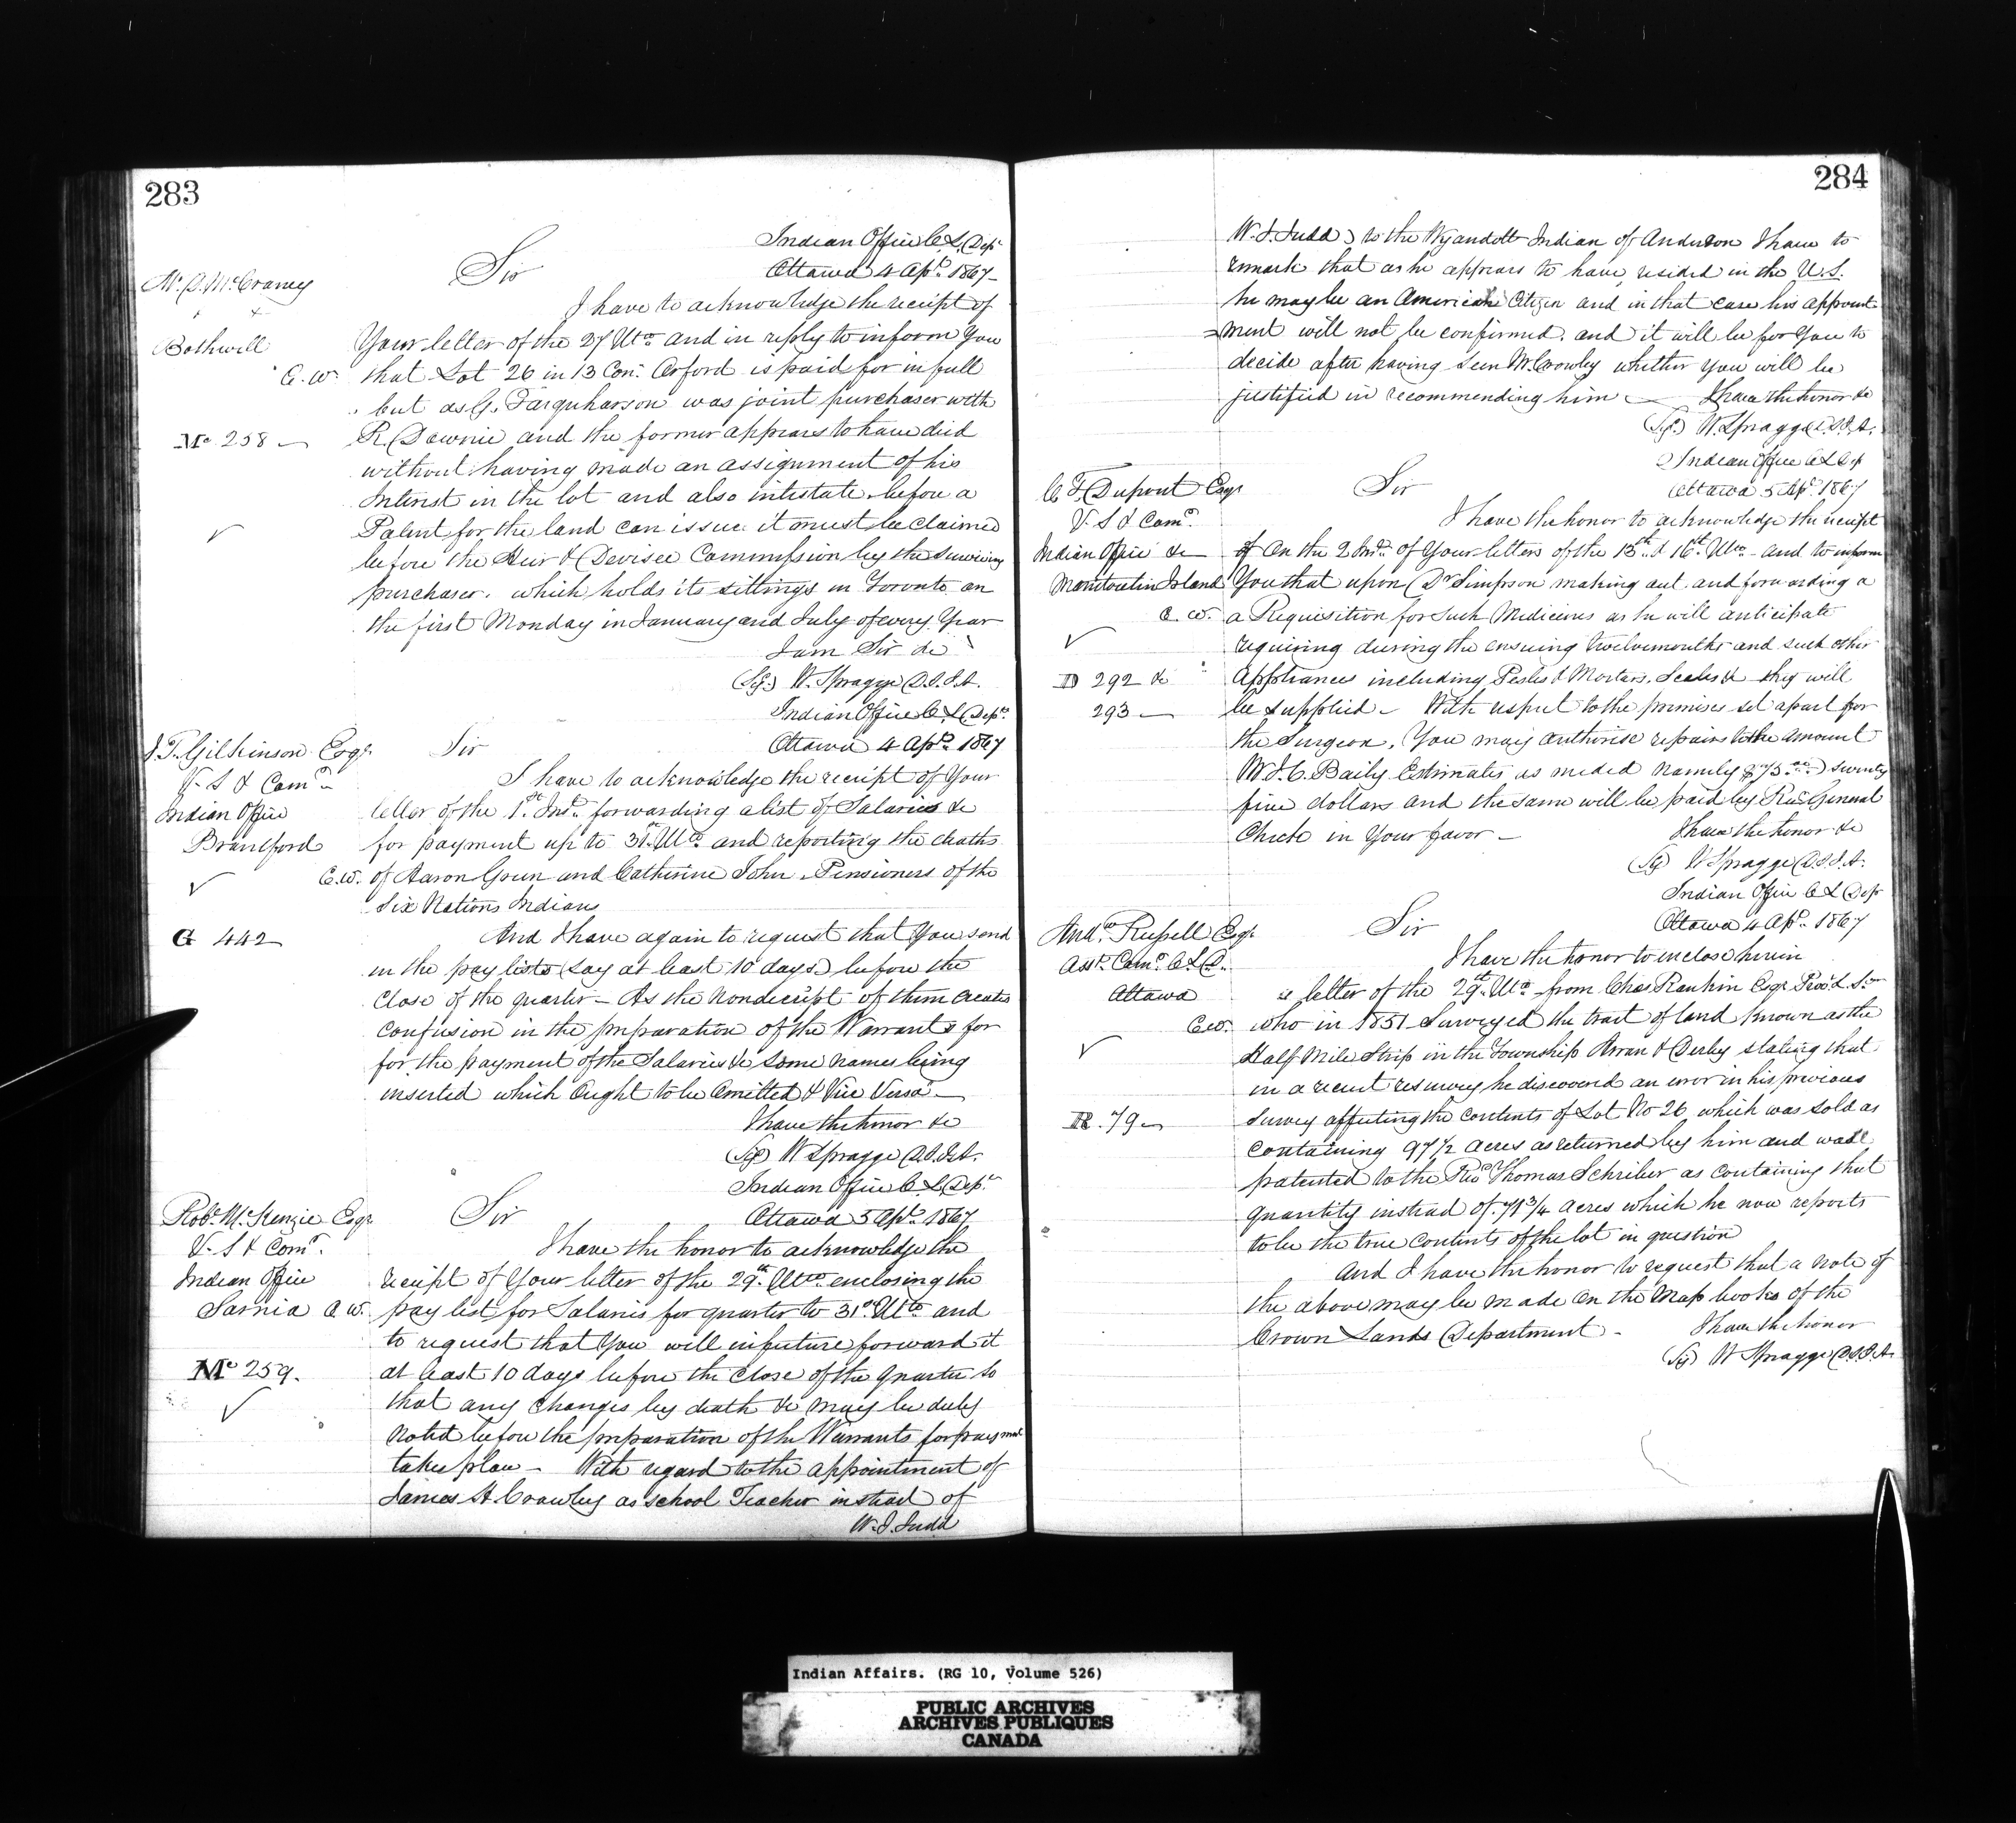 283
Indian Office C.L. Dept
Ottawa 4 Apl. 1867
Mr. D. McCraney
Sir
I have to acknowledge the receipt of
Bothwell
Your letter of the 27 Ulto and in reply to inform You
C.W.
that Lot 26 in 13 Con. Orford is paid for in full
but as G. Farquharson was joint purchaser with
Mc 258
R Downie and the former appears to have died
without having made an assignment of his
Interest in the lot and also intestate before a
Patent for the land can issue it must be claimed
before the Heir & Devisee Commission by the surviving
purchaser, which holds its sittings in Toronto on
the first Monday in January and July of every Year
I am Sir &c
(Sg.) W. Spragge D.S.I.A.
Indian Office C.L. Dept.
Ottawa 4 Apl. 1867
J.T. Gilkinson Esqr.
Sir
V. S & Comr.
I have to acknowledge the receipt of Your
Indian Office
letter of the 1st. Inst. forwarding a list of Salaries &c
Brantford
for payment up to 31st. Ulto and reporting the deaths
C.W.
of Aaron Green and Catherine John, Pensioners of the
Six Nations Indians
G 442
And I have again to request that You send
in the pay lists (say at least 10 days) before the
Close of the quarter – As the Nonreceipt of them Creates
Confusion in the preparation of the Warrants for
for the payment of the Salaries &c some names being
inserted which Ought to be Omitted & Vice Versa –
I have the honor &c
(Sg) W Spragge D.S.I.A.
Indian Office C.L. Dept.
Ottawa 5 Apl. 1867
Robt. McKenzie Esqr
Sir
V. S & Comr.
I have the honor to acknowledge the
Indian Office
receipt of Your letter of the 29th. Ulto. enclosing the
Sarnia C W.
pay list for Salaries for quarter to 31st Ulto and
to request that You will in future forward it
Mc 259.
at least 10 days before the Close of the Quarter so
that any changes by death &c may be duly
Noted before the preparation of the Warrants for payment
takes place – With regard to the appointment of
James H. Crowley as School Teacher instead of
W. I. Judd
284
W. I. Judd) to the Wyandott Indian of Anderdon I have to
remark that as he appears to have resided in the U.S.
he may be an American Citizen and in that case his appoint
=ment will not be confirmed, and it will be for You to
decide after having seen Mr. Crowley whether You will be
justified in recommending him – I have the honor &c
(Sg.) W. Spragge D.S.I.A.
Indian Office C L Dep
Ottawa 5 Apl. 1867
C. T. Dupont Esqr
Sir
V. S & Comr.
I have the honor to acknowledge the receipt
Indian Office &c
of On the 2 Inst. of Your letters of the 15th. & 16th. Ulto – and to inform
Manitoulin Island
You that upon Dr Simpson making out and forwarding a
C. W.
a Requisition for Such Medicines as he will anticipate
requiring during the ensuing twelvemonths and such other
D 292 &
Appliances including Pestles & Mortars, Scales & they will
293
be supplied – With respect to the premises set apart for
the Surgeon, You may authorise repairs to the Amount
Mr J. C. Baily Estimates as needed namely $75.00 seventy
five dollars and the same will be paid by Recr. General
Check in Your favor –
I have the honor &c
(Sg) W Spragge D.S.I.A.
Indian Office C L Dep
Ottawa 4 Apl. 1867
Andw. Russell Esqr.
Sir
Asst. Comr. C.L.D.
I have the honor to enclose herein
Ottawa
a letter of the 29th. Ulto from Chas Rankin Esqr Provl. L. Sr
C.W.
who in 1851 Surveyed the tract of land known as the
Half Mile Strip in the Township Arran & Derby stating that
in a recent resurvey he discovered an error in his previous
R. 79
Survey affecting the contents of Lot No 26 which was sold as
Containing 97 1/2 Acres as returned by him and was
patented to the Revd Thomas Schriber as containing that
quantity instead of 71 3/4 Acres which he now reports
to be the true contents of the lot in question
And I have the honor to request that a note of
the above may be made on the Map books of the
Crown Lands Department –
I have the honor
(Sg) W Spragge D.S.I.A.
Indian Affairs. (RG 10, Volume 526)
PUBLIC ARCHIVES
ARCHIVES PUBLIQUES
CANADA